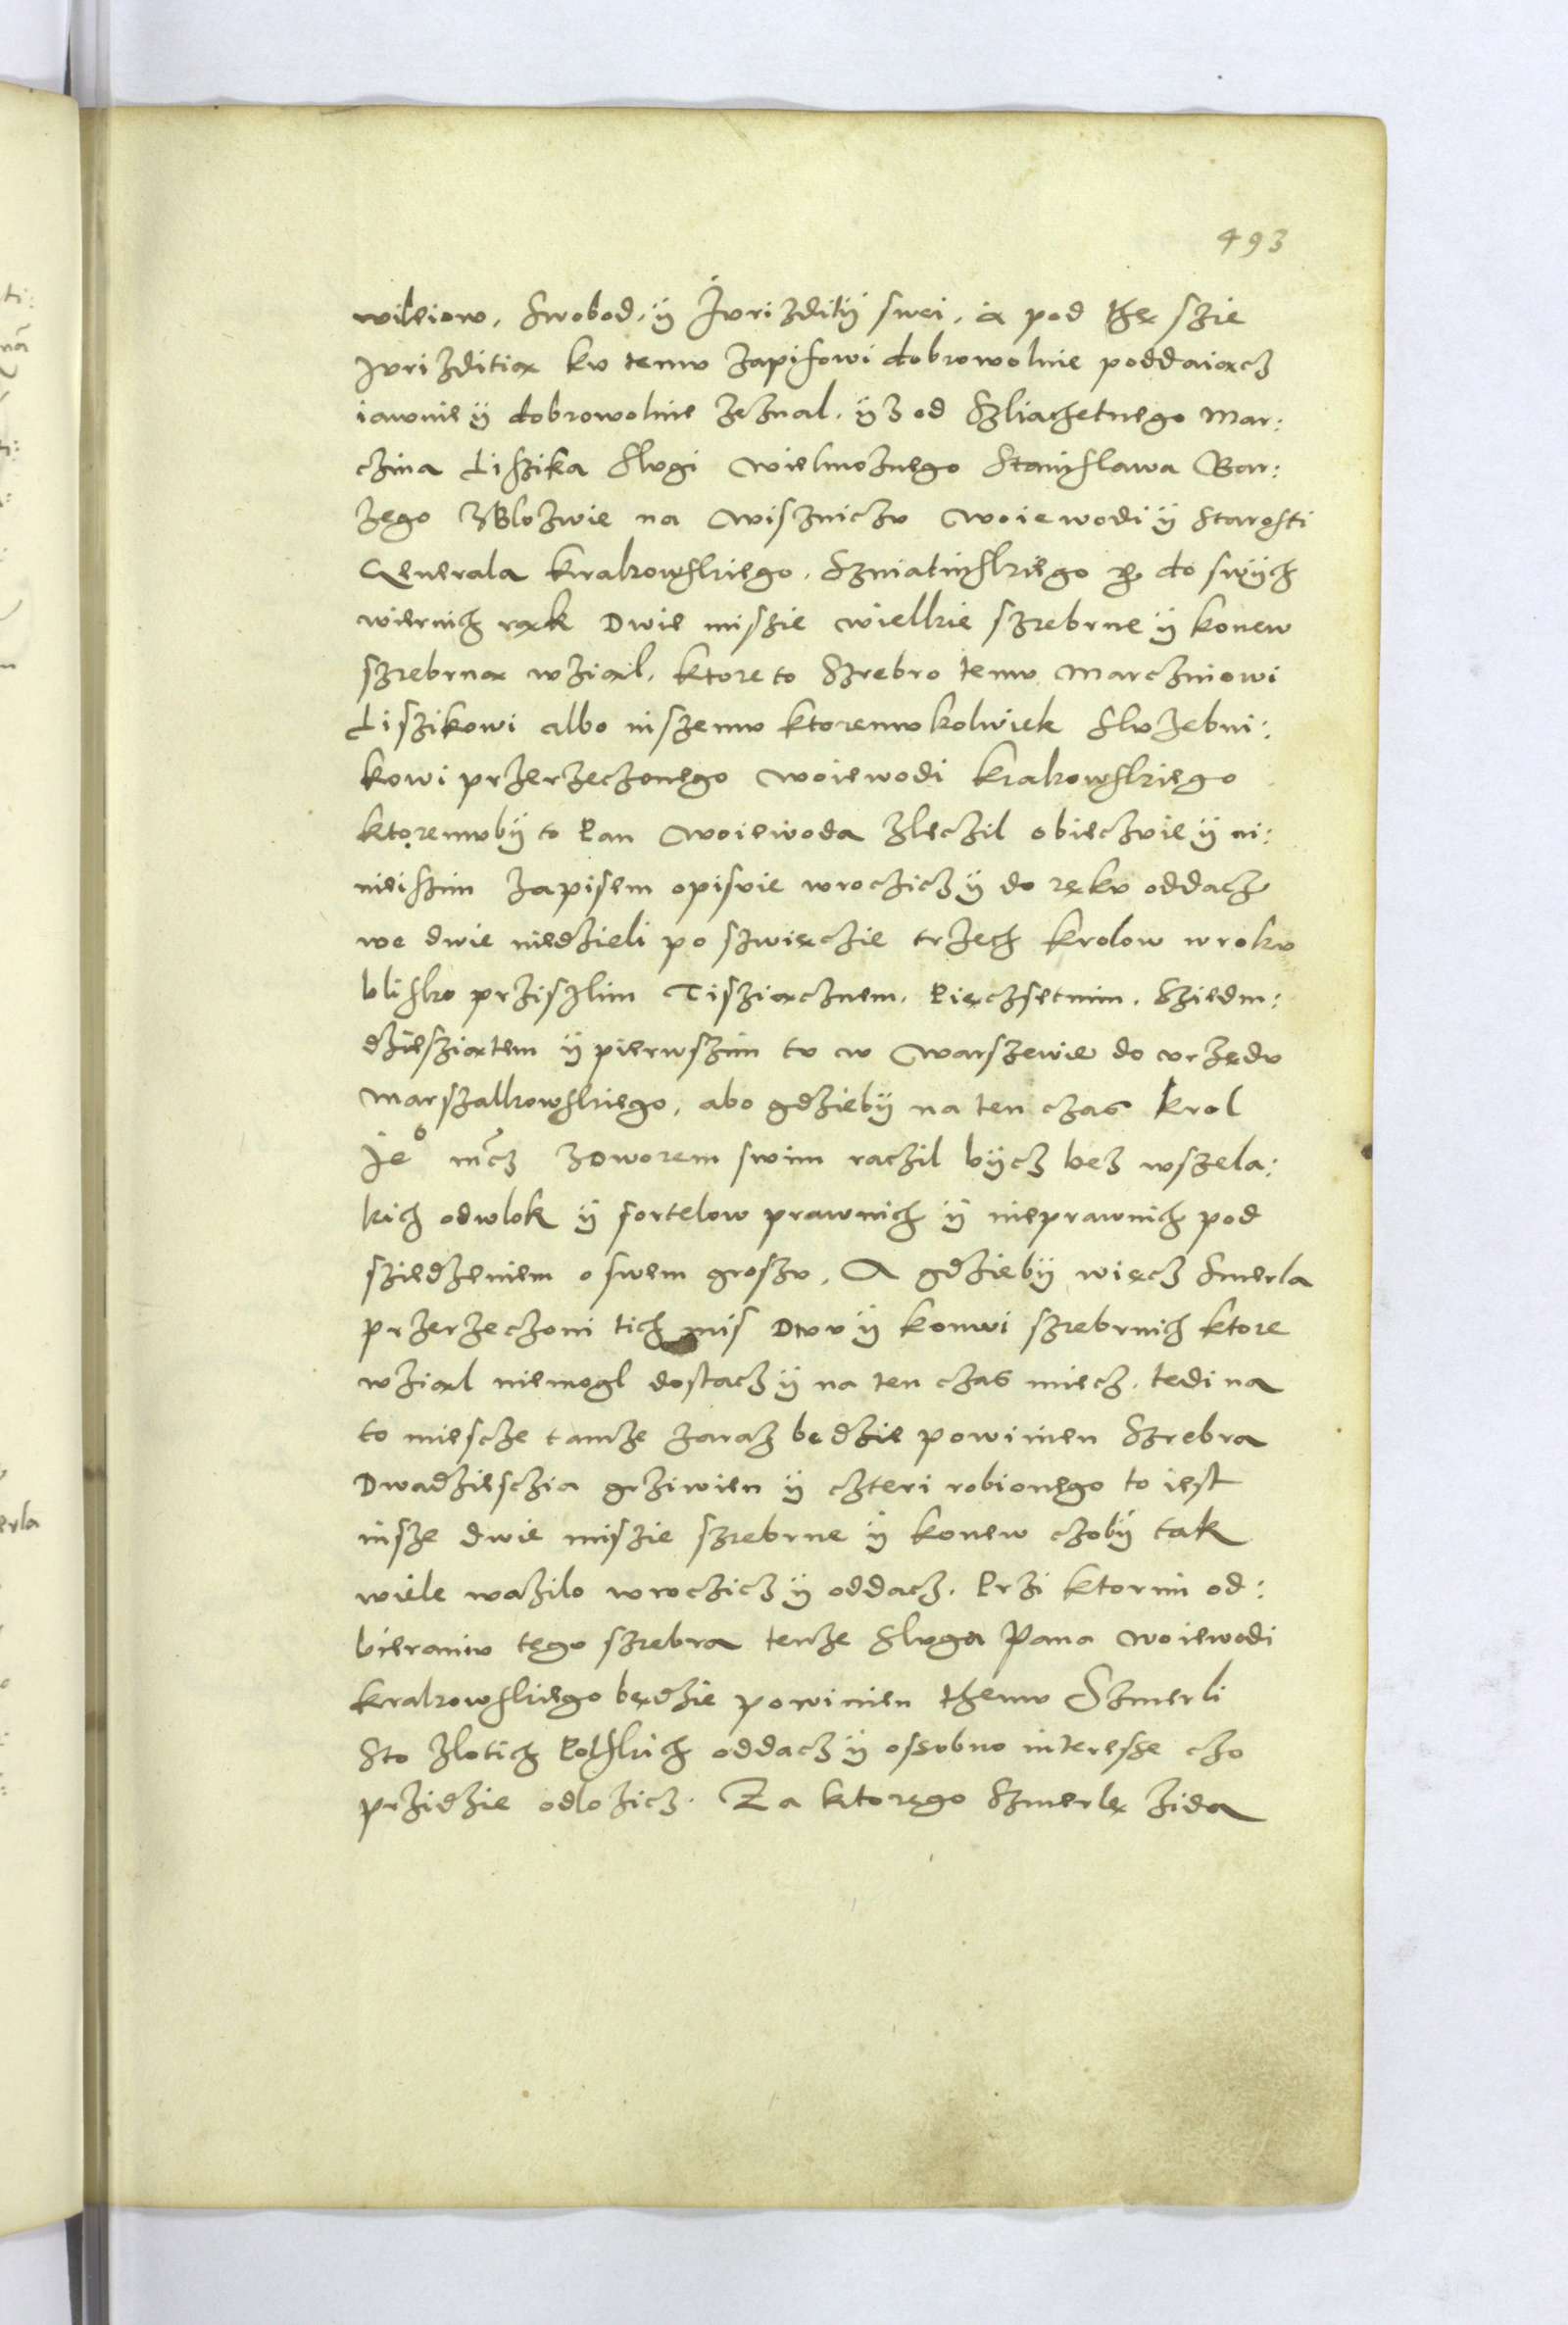 493
wileiow, Swobod, ÿ Jurizditÿ swei, a pod thę szie
Jurizditią ku temu zapisowi dobrowolnie poddaiącz
iawnie ÿ dobrowolnie zeznal, ÿz od Szliachetnego Mar:
czina Liszika Slugi Wielmoznego Stanislawa Bar:
zego z Blozwie na Wiszniczu Woiewodi ÿ Starosti
Generala Krakowskiego, Szniatinskiego do swÿch
wiernich rąk Dwie missie wielkie szrebrne ÿ konew
szrebrną wziąl, ktore to Szrebro temu Marcziniowi
Liszikowi albo inszemu ktoremukolwiek Sluzebni:
kowi przerzeczonego Woiewodi Krakowskiego
ktoremubÿ to Pan Woiewoda zleczil obieczuie ÿ ni:
nieiszim zapisem opisuie wroczicz ÿ do ręku oddacz
we dwie niedzieli po szwięczie trzech Krolow w roku
blisko prziszlim Tisziącznem, Pięczsetnim, Sziedm:
dziesziątem ÿ pierwszim tu w Warszewie do urzędu
Marszalkowskiego, abo gdziebÿ na ten czas Krol
Je° mcz z Dworem swim raczil bÿcz bez wszela:
kich odwlok ÿ fortelow prawnich ÿ nieprawnich pod
sziedzeniem o swem groszu, A gdziebÿ więcz Smerla
przerzeczoni tich mis Dwu ÿ konwi szrebrnich ktore
wziąl niemogl dostacz ÿ na ten czas miecz, tedi na
to miescze tamze zaraz będzie powinien Szrebra
Dwadziesczia grziwien ÿ czteri robionego to iest
insze dwie miszie szrebrne ÿ konew czobÿ tak
wiele wazilo wroczicz ÿ oddacz. Przi ktorim od:
bieraniu tego szrebra tenze Sluga Pana Woiewodi
Krakowskiego będzie powinien themu Szmerli
Sto zlotich Polskich oddacz ÿ ossobno interesse czo
przidzie odlozicz. Za ktorego Szmerlę zida